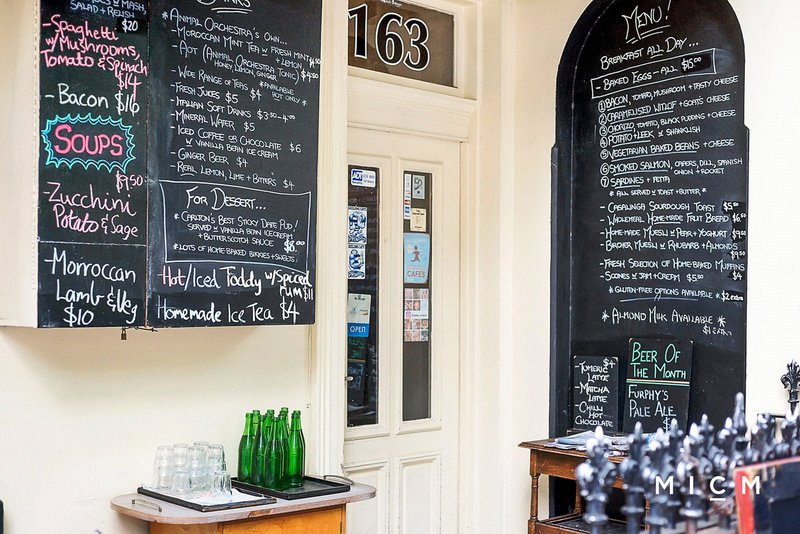 W MASH,
SALAD + RELISH
$20
Spaghetti
w/Mushrooms,
Tomato & Spinach
$14
- Bacon $16
SOUPS
$9.50
Zucchini
Potato & Sage
- Morroccan
Lamb & Veg
$10
*ANIMAL ORCHESTRA'S OWN...
- MOROCCAN MINT TEA W FRESH MINT + LEMON
- AOT (ANIMAL ORCHESTRA TONIC) $4.50
HONEY, LEMON, GINGER
- WIDE RANGE OF TEAS $4 *AVAILABLE HOT ONLY*
- FRESH JUICES $5
- ITALIAN SOFT DRINKS $3.50-4.00
- MINERAL WATER $5
- ICED COFFEE OR CHOCOLATE $6
W VANILLA BEAN ICE CREAM
- GINGER BEER $4
- REAL LEMON, LIME + BITTERS $4
FOR DESSERT...
*CARLTON'S BEST STICKY DATE PUD!
SERVED W VANILLA BEAN ICECREAM
+ BUTTERSCOTCH SAUCE $8.00
*LOTS OF HOME-BAKED BIKKIES + SWEETS!
Hot/Iced Toddy w/Spiced
Rum $11
Homemade Ice Tea $4
163
OPEN
CAFES
MENU!
BREAKFAST ALL DAY...
- BAKED EGGS - ALL $15.00
① BACON, TOMATO, MUSHROOM + TASTY CHEESE
② CARAMELISED WITLOF + GOATS CHEESE
③ CHORIZO, TOMATO, BLACK PUDDING + CHEESE
④ POTATO + LEEK W SHANKLISH
⑤ VEGETARIAN BAKED BEANS + CHEESE
⑥ SMOKED SALMON, CAPERS, DILL, SPANISH
ONION + ROCKET
⑦ SARDINES + FETTA
* ALL SERVED W TOAST + BUTTER *
- CASALINGA SOURDOUGH TOAST $5.50
- WHOLEMEAL HOME-MADE FRUIT BREAD $6.50
- HOME-MADE MUESLI W PEAR + YOGHURT $9.50
- BIRCHER MUESLI W RHUBARB + ALMONDS $9.50
- FRESH SELECTION OF HOME-BAKED MUFFINS
- SCONES W JAM + CREAM $5.50 $4
* GLUTEN-FREE OPTIONS AVAILABLE * $2 extra
* ALMOND MILK AVAILABLE *
$1 extra
$4
- TUMERIC
LATTE
- MATCHA
LATTE
- CHILLI
HOT
CHOCOLATE
BEER OF
THE MONTH
FURPHY'S
PALE ALE
MICM